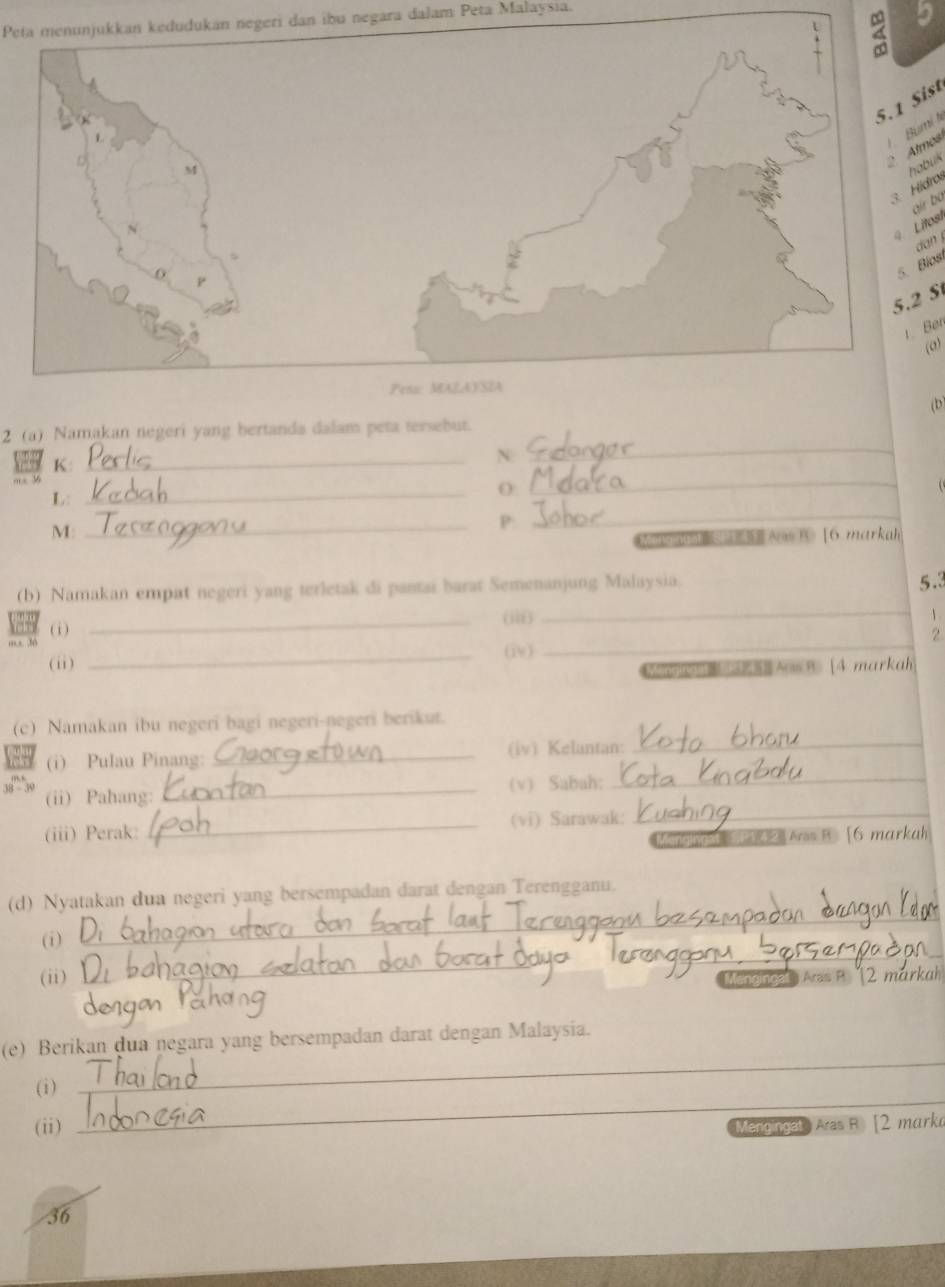 Peta menunjukkan kedudukan negeri dan ibu negara dalam Peta Malaysia.
BAB 5
U
K
L
M
N
O
P
5.1 Sist
1. Bumi te
2. Atmos
habuk
3. Hidros
air ba
4. Litosf
dan
5. Biosf
5.2 S
1. Ber
(a)
(b)
Peta: MALAYSIA
2 (a) Namakan negeri yang bertanda dalam peta tersebut.
Buku Teks m.s. 36
K: Perlis N: Selangor
L: Kedah O: Melaka
M: Terengganu P: Johor
Mengingat SP1.4.1 Aras R [6 markah
(b) Namakan empat negeri yang terletak di pantai barat Semenanjung Malaysia.
5.3
Buku Teks m.s. 36
(i) (iii)
1.
2
(ii) (iv)
Mengingat SP1.4.1 Aras R [4 markah
(c) Namakan ibu negeri bagi negeri-negeri berikut.
Buku Teks m.s. 38 - 39
(i) Pulau Pinang: Georgetown (iv) Kelantan: Kota bharu
(ii) Pahang: Kuantan (v) Sabah: Kota Kinabalu
(iii) Perak: Ipoh (vi) Sarawak: Kuching
Mengingat SP1.4.2 Aras R [6 markah
(d) Nyatakan dua negeri yang bersempadan darat dengan Terengganu.
(i) Di bahagian utara dan barat laut Terengganu besempadan dengan
(ii) Di bahagian selatan dan barat daya Terengganu. bersempadan
dengan Pahang
Mengingat Aras R [2 markah
(e) Berikan dua negara yang bersempadan darat dengan Malaysia.
(i) Thailand
(ii) Indonesia
Mengingat Aras R [2 marka
36